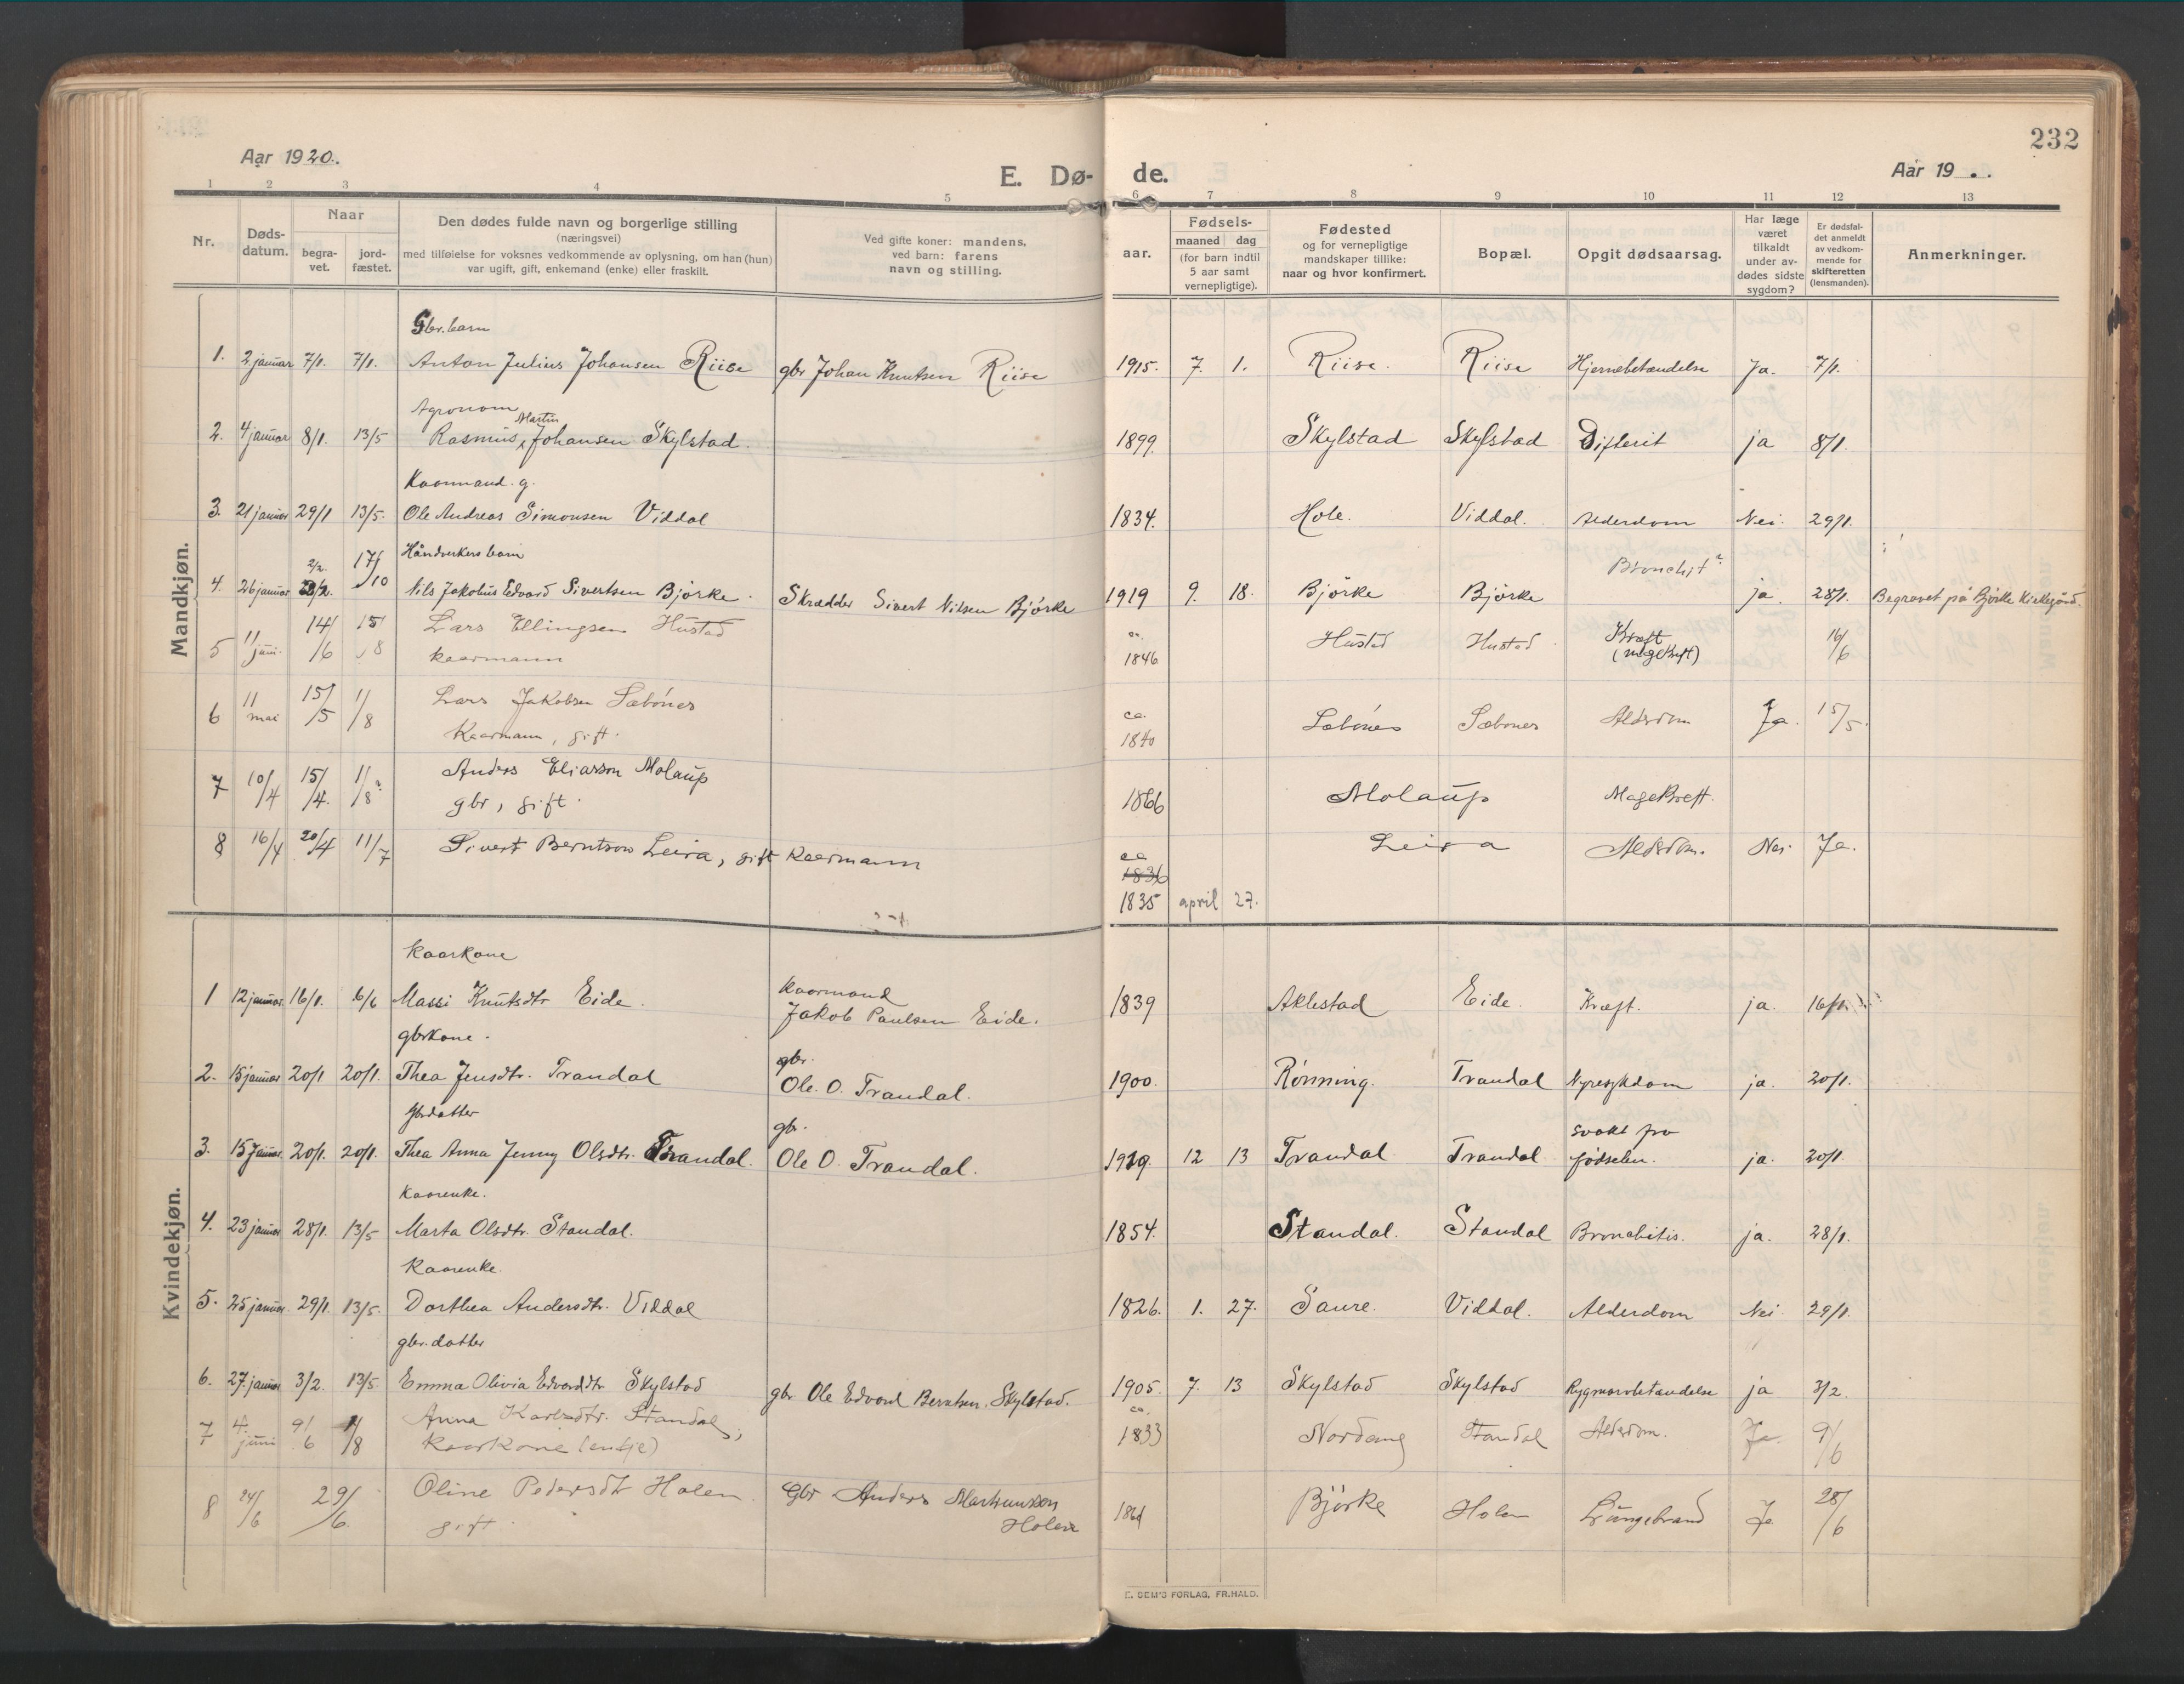 232
Aar 1920.
E. Dø- de.
Aar 19 .
1 2 3 4 5 6 7 8 9 10 11 12 13
Nr.
Døds-
datum.
Naar
begra-
vet.
jord-
fæstet.
Den dødes fulde navn og borgerlige stilling
(næringsvei)
med tilføielse for voksnes vedkommende av oplysning, om han (hun)
var ugift, gift, enkemand (enke) eller fraskilt.
Ved gifte koner: mandens,
ved barn: farens
navn og stilling.
aar.
Fødsels-
maaned dag
(for barn indtil
5 aar samt
vernepligtige).
Fødested
og for vernepligtige
mandskaper tillike:
naar og hvor konfirmert.
Bopæl.
Opgit dødsaarsag.
Har læge
været
tilkaldt
under av-
dødes sidste
sygdom?
Er dødsfal-
det anmeldt
av vedkom-
mende for
skifteretten
(lensmanden).
Anmerkninger.
Mandkjøn.
Gbr. barn
1. 2 januar 7/1. 7/1. Anton Julius Johansen Riise gbr Johan Knutsen Riise 1915. 7. 1. Riise. Riise Hjernebetændelse Ja. 7/1.
Agronom
Martin
2. 4 januar 8/1. 13/5 Rasmus Johansen Skylstad. 1899. Skylstad Skylstad Difterit ja 8/1.
Kaarmand. g.
3. 21 januar 29/1 13/5. Ole Andreas Simonsen Viddal 1834. Hole. Viddal. Alderdom Nei. 29/1.
2/2. 17/10 Håndverkers barn Bronchit?
4. 26 januar Nils Jakobus Edvard Sivertsen Bjørke. Skrædder Sivert Nilsen Bjørke 1919 9. 18. Bjørke Bjørke ja. 28/1. Begravet på Bjørke Kirkegård.
5 11 juni. 14/6 15/8 Lars Ellingsen Hustad ca. 1846 Hustad Hustad Kræft 16/6
kaarmann (magekræft)
6 11 mai 15/5 1/8 Lars Jakobsen Sæbönes ca. 1840 Sæbönes Sæbönes Alderdom Ja. 15/5.
Kaarmann, gift.
7 10/4 15/4. 1/8? Anders Eliasson Molaup 1866 Molaup Magekreft.
gbr, gift.
8 16/4 20/4 11/7 Sivert Berntson Leira, gift kaarmann ca 1836 Leira Alderdom. Nei Ja.
1835 april 27.
Kvindekjøn.
Kaarkone
1 12 januar. 16/1. 6/6 Massi Knutsdtr Eide. Kaarmand
Jakob Paulsen Eide. 1839 Aklestad Eide. Kræft. ja. 16/1.
gbrkone.
2. 15 januar 20/1 20/1. Thea Jensdtr. Trandal gbr.
Ole. O. Trandal. 1900. Rönning. Trandal Nyresykdom ja. 20/1.
Gbrdatter
3. 15 januar. 20/1. 20/1. Thea Anna Jenny Olsdtr. Trandal. gbr.
Ole O. Trandal. 1919. 12 13 Trandal Trandal svakt fra
fødselen. ja. 20/1.
Kaarenke.
4. 23 januar 28/1. 13/5 Marta Olsdtr. Standal. 1854. Standal. Standal Bronchitis. ja. 28/1.
Kaarenke.
5. 25 januar. 29/1. 13/5. Dorthea Andersdtr. Viddal 1826. 1. 27. Saure. Viddal. Alderdom Nei 29/1.
gbr. datter
6. 27. januar 3/2. 13/5. Emma Olivia Edvarddtr Skylstad gbr. Ole Edvard Berntsen. Skylstad. 1905. 7. 13 Skylstad Skylstad Rygmarvbetændelse ja 3/2.
7 4. juni 9/6 1/8 Anna Karlsdtr. Standal, ca. 1833 Nordang Standal Alderdom. Ja 9/6
Kaarkone (enkje)
8 24/6 29/6. Oline Pedersdtr Holen. Gbr Anders Martinusson
Holen 1861 Björke Holen Lungebrand Ja 28/6
gift.
E. SEM'S FORLAG, FR.HALD.